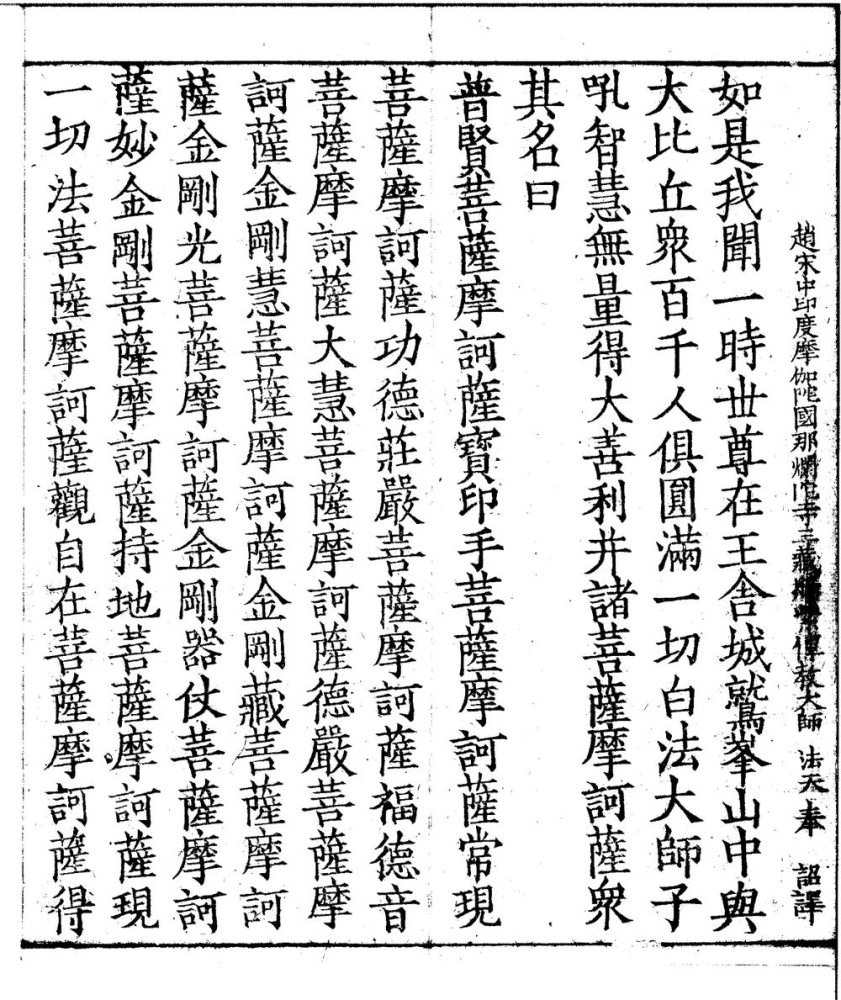 趙宋中印度摩伽陀國那爛陀寺三藏傳教大師 法天奉 詔譯
如是我聞一時世尊在王舍城鷲峯山中與
大比丘衆百千人俱圓滿一切白法大師子
吼智慧無量得大善利并諸菩薩摩訶薩衆
其名曰
普賢菩薩摩訶薩寶印手菩薩摩訶薩常現
菩薩摩訶薩功德莊嚴菩薩摩訶薩福德音
菩薩摩訶薩大慧菩薩摩訶薩德嚴菩薩摩
訶薩金剛慧菩薩摩訶薩金剛藏菩薩摩訶
薩金剛光菩薩摩訶薩金剛器仗菩薩摩訶
薩妙金剛菩薩摩訶薩持地菩薩摩訶薩現
一切法菩薩摩訶薩觀自在菩薩摩訶薩得